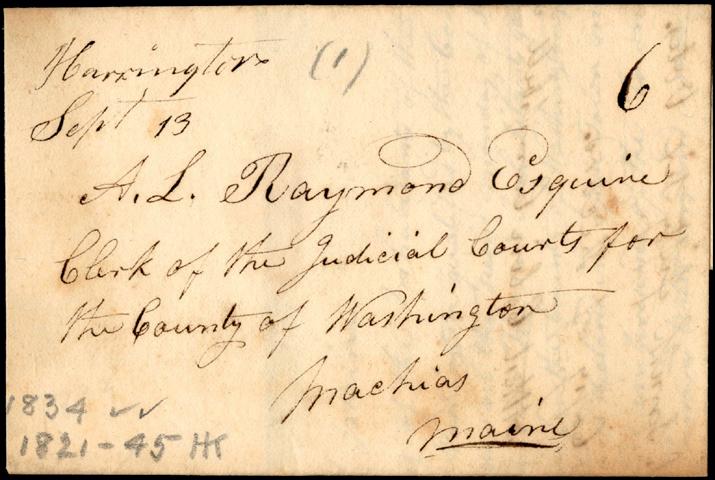 Harrington (1)
6
Sept 13
A. L. Raymond Esquire
Clerk of the Judicial Courts for
the County of Washington
Machias
Maine
1834 ✓✓
1821-45 HK